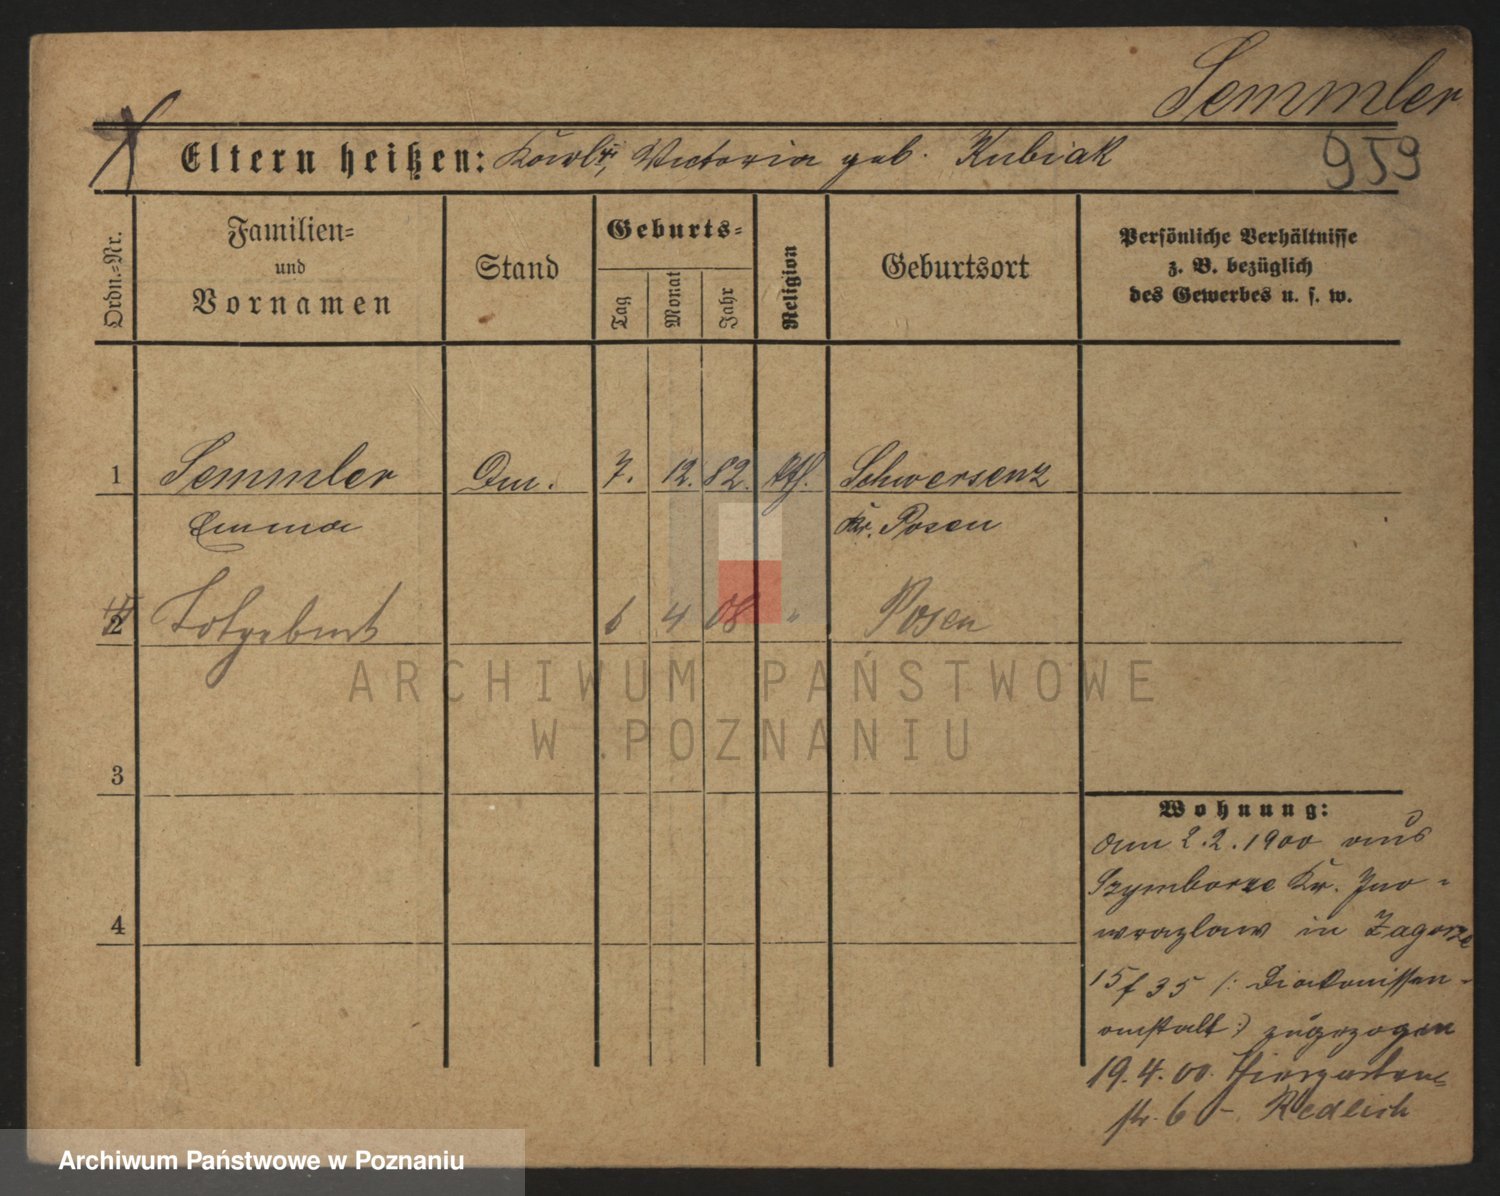 Semmler
959
Eltern heißen: Karl, Victoria geb. Kubiak
Ordn.-Nr.
Familien-
und
Vornamen
Stand
Geburts-
Tag
Monat
Jahr
Religion
Geburtsort
Persönliche Verhältnisse
z. B. bezüglich
des Gewerbes u. s. w.
1 Semmler 7. 12. 82. Kth. Schwersenz
Emma Kr. Posen
2 Totgeburt 6 4 08 " Posen
3
4
Wohnung:
Am 2.2.1900 aus
Szymborze Kr. Ino-
wrazlaw in Zagorze
15/35 (: Diakonissen-
anstalt :) zugezogen
19.4.00. Thiergarten-
str. 6 - Redlich
ARCHIWUM PAŃSTWOWE
W POZNANIU
Archiwum Państwowe w Poznaniu